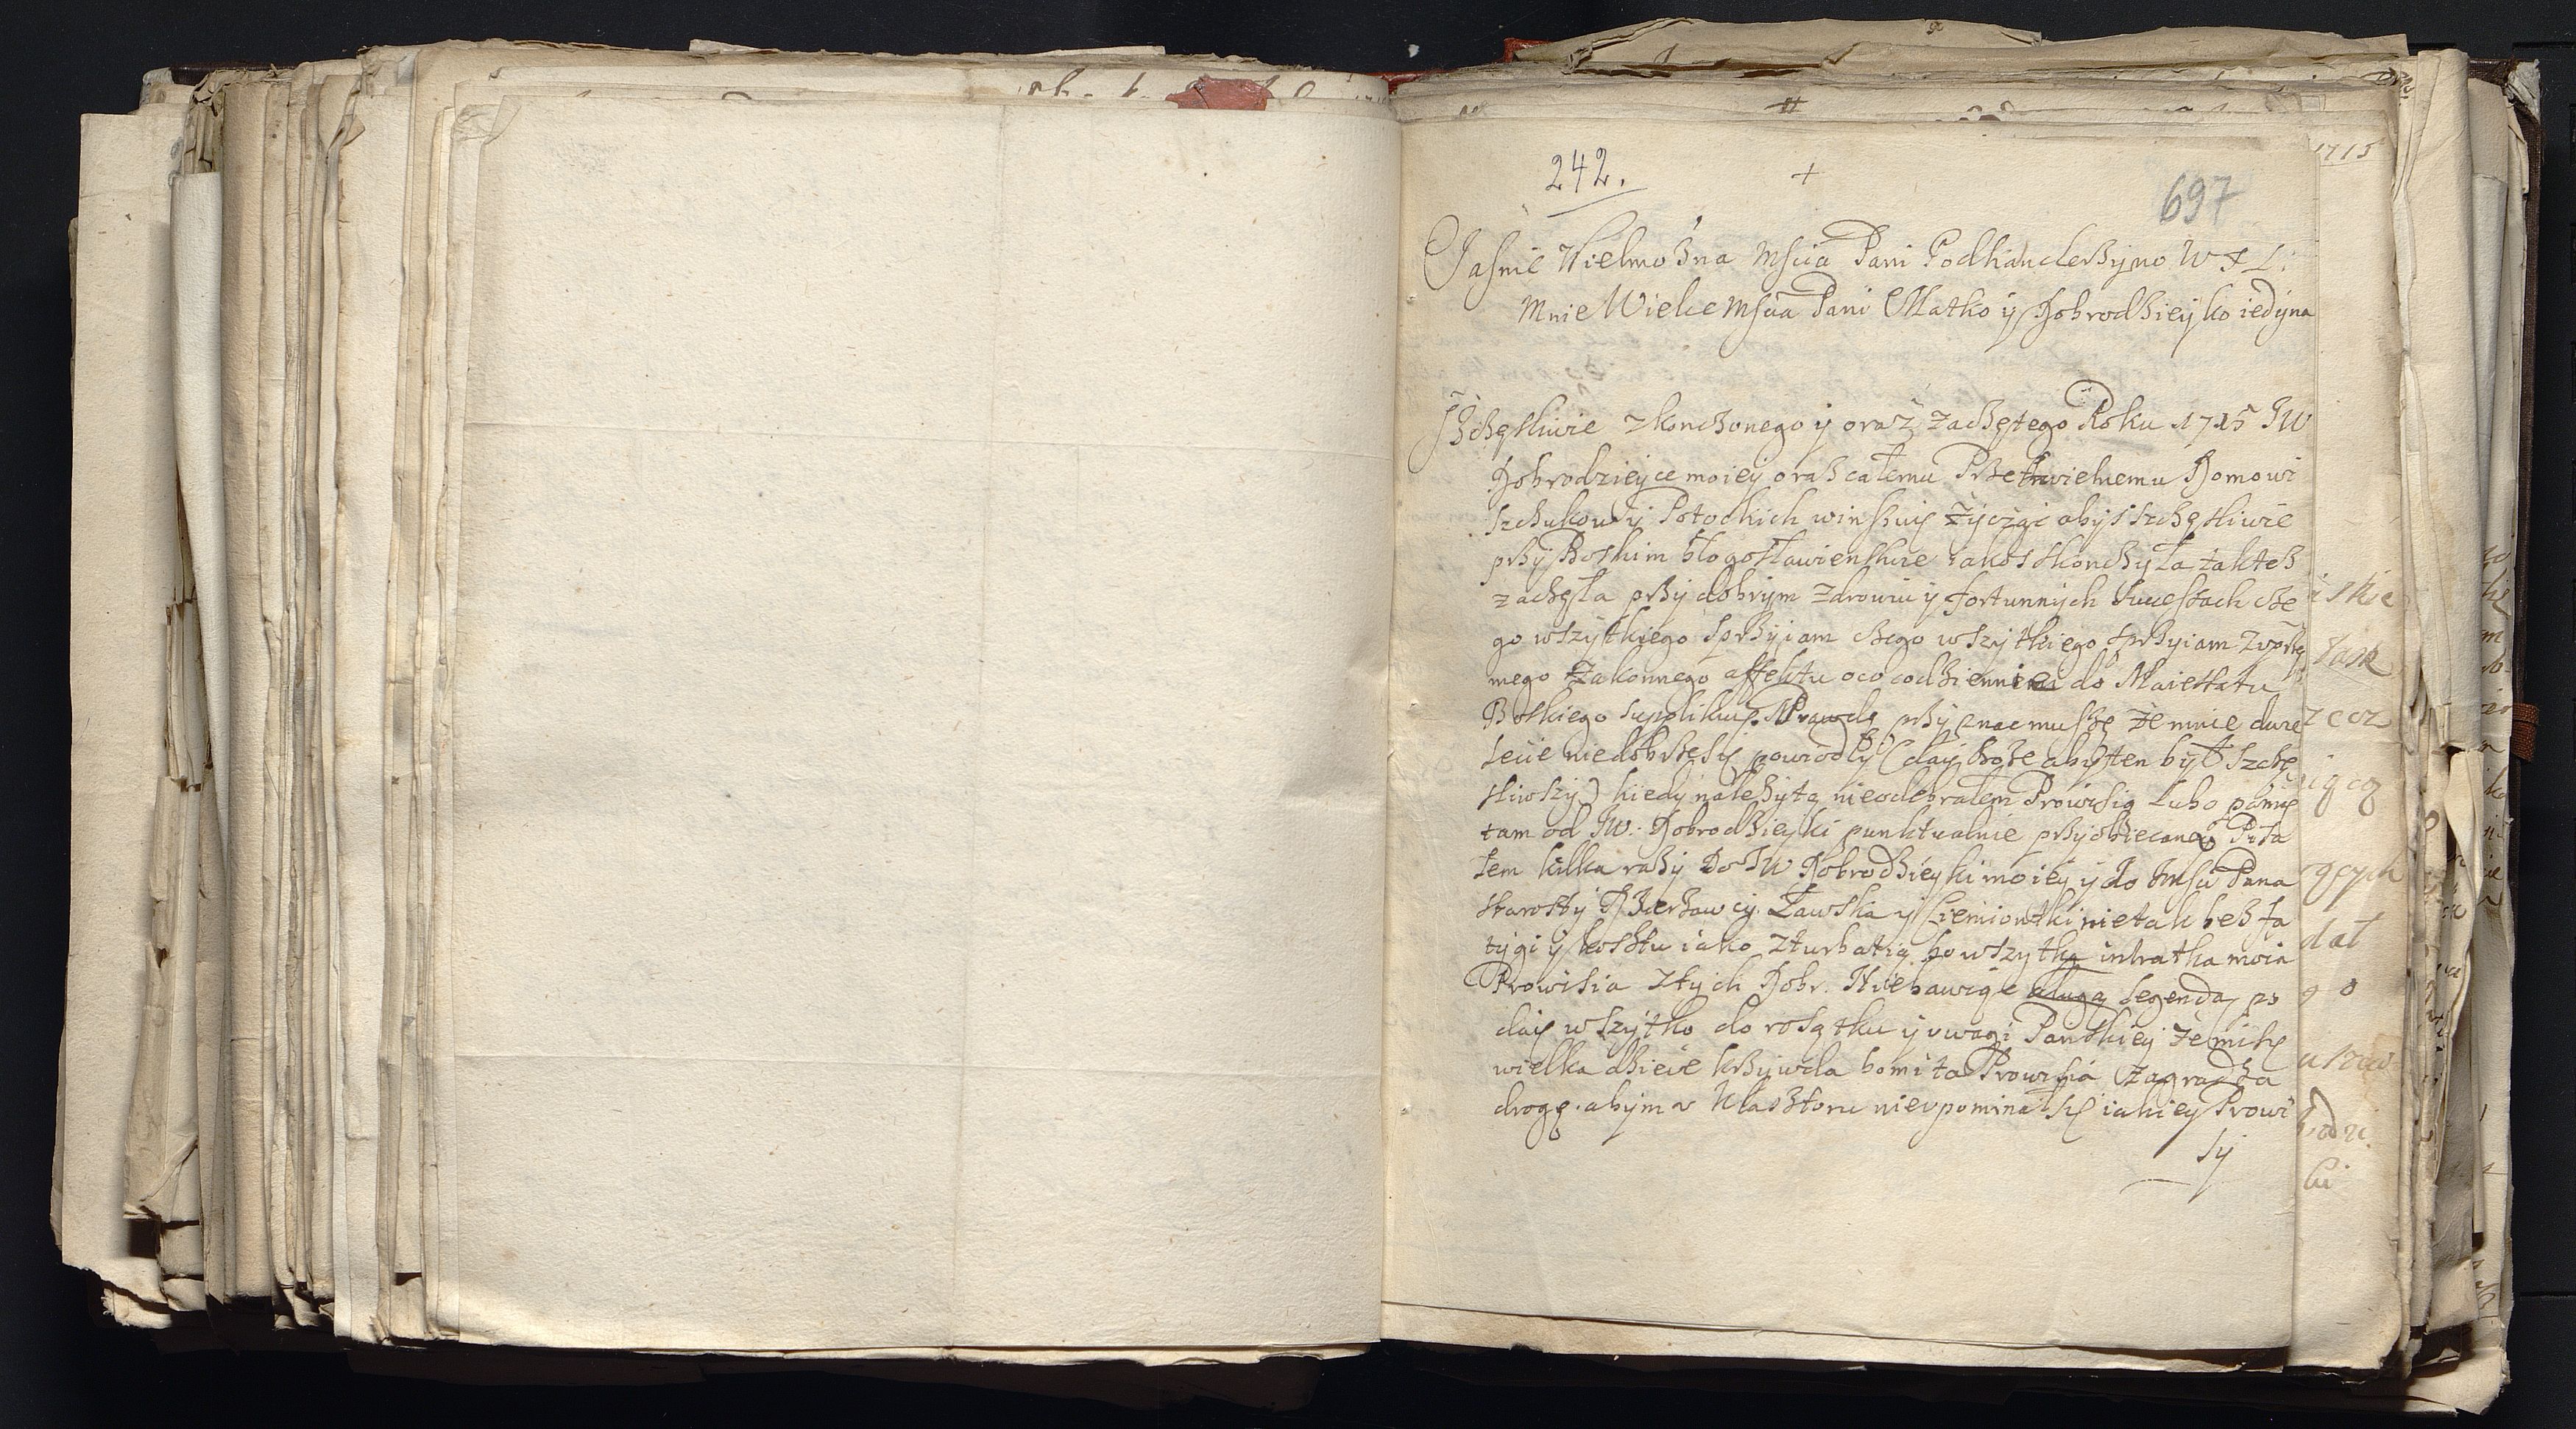 1715
242.
+
697
Jaśnie Wielmożna Mscia Pani Podkanclerzyno W X L:
Mnie Wielce Mscia Pani Matko y Dobrodzieyko iedyna
Szczęsliwie zkonczonego y oraz zaczętego Roku 1715 JW
Dobrodzieyce moiey oraz całemu Prześwietnemu Domowi
Szczukow y Potockich winszuię życząc abyś szczęsliwie
przy Boskim błogosławienstwie iakoś skonczyła takteż
zaczęła przy dobrym zdrowiu y fortunnych sucessach cze
go wszytkiego sprzyiam czego wszytkiego sprzyiam z uprzey
mego zakonnego affektu oco codziennie do Maiestatu
Boskiego supplikuię. Prawdę przyznac muszę że mnie dwie
lecie niedobrze się powiodły (day Boże aby ten był szczę
sliwszy) kiedy należytą nieodebrałem Prowisią lubo pamię
tam od JW. Dobrodzieyki punktualnie przyobiecaney Pisa
łem kilka razy Do JW Dobrodzieyki moiey y do Jmsci Pana
starosty Dzierżawcy Ławska y Ciemiontki nie tak bez fa
tygi y kosztu iako z turbatią bo wszytka intratka moia
Prowisia z tych Dobr. Niebawiąc legendą po
daię wszytko do rosątku y uwagi Panskiey że mi się
wielka dzieie krzywda bo mi ta Prowisia zagradza
drogę. abym u Klasztoru nieupominał się iakiey Prowi
sy
iskie
łask
zecz
iącą
dał
go